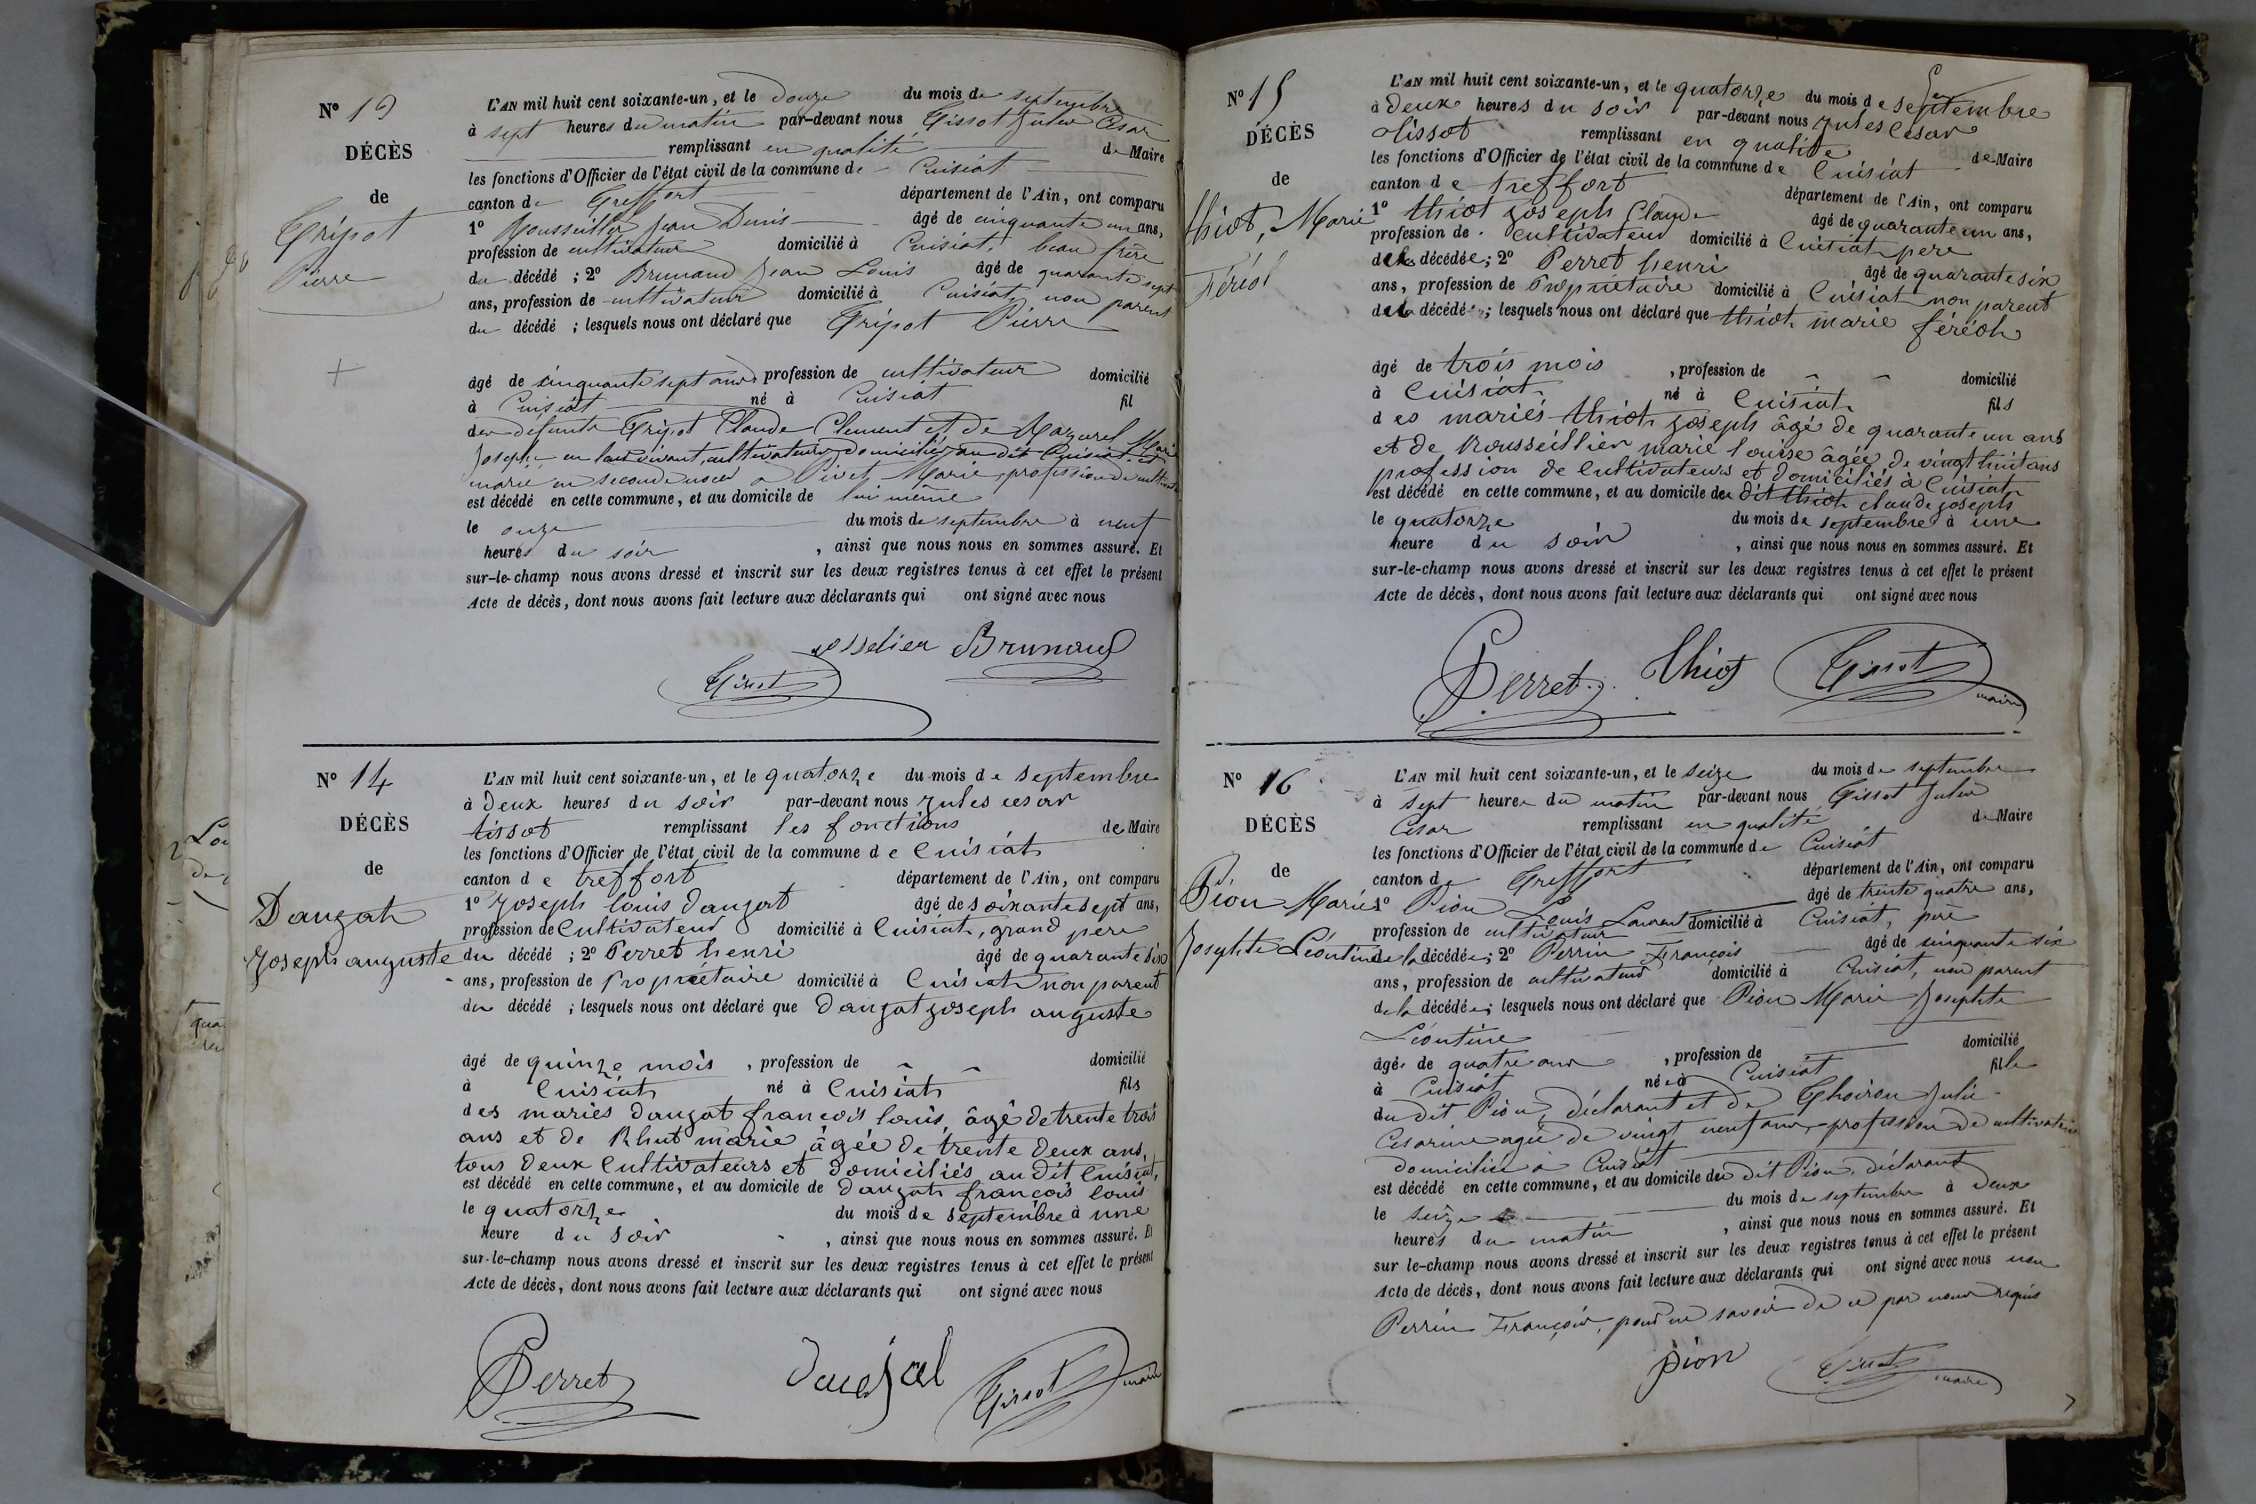 N° 13
DÉCÈS
de
Tripot
Pierre
L'AN mil huit cent soixante-un, et le Douze du mois de septembre
à sept heures du matin par-devant nous Tissot Jules César
remplissant en qualité de Maire
les fonctions d'Officier de l'état civil de la commune de Cuisiat
canton de Treffort département de l'Ain, ont comparu
1° Rousseillier Jean Denis âgé de cinquante un ans,
profession de cultivateur domicilié à Cuisiat, beau frère
du décédé ; 2° Brunaud Jean Louis âgé de quarante sept
ans, profession de cultivateur domicilié à Cuisiat, non parent
du décédé ; lesquels nous ont déclaré que Tripot Pierre
âgé de cinquante sept ans profession de cultivateur domicilié
à Cuisiat né à Cuisiat fil
des défunts Tripot Claude Clement et de Mazurel Marie
Josephe en leur vivant cultivateurs domiciliés au dit Cuisiat et
marié en seconde noces a Pivet Marie, profession de cultivat
est décédé en cette commune, et au domicile de lui même
le onze du mois de septembre à neuf
heures du soir , ainsi que nous nous en sommes assuré. Et
sur-le-champ nous avons dressé et inscrit sur les deux registres tenus à cet effet le présent
Acte de décès, dont nous avons fait lecture aux déclarants qui ont signé avec nous
Brunaud
Tissot
N° 14
DÉCÈS
de
Dauzat
Joseph auguste
L'AN mil huit cent soixante-un, et le quatorze du mois de septembre
à Deux heures du soir par-devant nous Jules cesar
tissot remplissant les fonctions de Maire
les fonctions d'Officier de l'état civil de la commune de Cuisiat
canton de treffort département de l'Ain, ont comparu
1° Joseph louis dauzat âgé de soixante sept ans,
profession de Cultivateur domicilié à Cuisiat, grand père
du décédé ; 2° Perret henri âgé de quarante six
ans, profession de Propriétaire domicilié à Cuisiat non parent
du décédé ; lesquels nous ont déclaré que Dauzat joseph auguste
âgé de quinze mois , profession de domicilié
à Cuisiat né à Cuisiat fils
des mariés Dauzat françois louis, âgé de trente trois
ans et de Rhut marie, âgée de trente Deux ans,
tous Deux Cultivateurs et domiciliés au dit Cuisiat,
est décédé en cette commune, et au domicile de Dauzat françois louis
le quatorze du mois de septembre à une
heure du soir , ainsi que nous nous en sommes assuré. Et
sur-le-champ nous avons dressé et inscrit sur les deux registres tenus à cet effet le présent
Acte de décès, dont nous avons fait lecture aux déclarants qui ont signé avec nous
Perret Tissot maire
N° 15
DÉCÈS
de
thiot, Marie
Féréol
L'AN mil huit cent soixante-un, et le quatorze du mois de septembre
à Deux heures du soir par-devant nous Jules César
tissot remplissant en qualité de Maire
les fonctions d'Officier de l'état civil de la commune de Cuisiat
canton de treffort département de l'Ain, ont comparu
1° thiot joseph Claude âgé de quarante un ans,
profession de cultivateur domicilié à Cuisiat père
de la décédée ; 2° Perret henri âgé de quarante six
ans, profession de Propriétaire domicilié à Cuisiat non parent
de la décédé ; lesquels nous ont déclaré que thiot marie féréol
âgé de trois mois , profession de domicilié
à Cuisiat né à Cuisiat fils
des mariés thiot joseph âgé de quarante un ans
et de Rousseillier marie louise âgée de vingt huit ans
profession de Cultivateurs et domiciliés à Cuisiat
est décédé en cette commune, et au domicile de dit thiot claude joseph
le quatorze du mois de septembre à une
heure du soir , ainsi que nous nous en sommes assuré. Et
sur-le-champ nous avons dressé et inscrit sur les deux registres tenus à cet effet le présent
Acte de décès, dont nous avons fait lecture aux déclarants qui ont signé avec nous
Perret thiot Tissot maire
N° 16
DÉCÈS
de
Pion Marie
Josephte Léontine
L'AN mil huit cent soixante-un, et le seize du mois de septembre
à sept heures du matin par-devant nous Tissot Jules
César remplissant en qualité de Maire
les fonctions d'Officier de l'état civil de la commune de Cuisiat
canton de Treffort département de l'Ain, ont comparu
1° Pion Louis Laurent âgé de trente quatre ans,
profession de cultivateur domicilié à Cuisiat, père
de la décédée ; 2° Perrin François âgé de cinquante six
ans, profession de cultivateur domicilié à Cuisiat, non parent
de la décédée ; lesquels nous ont déclaré que Pion Marie Josephte
Léontine
âgée de quatre ans , profession de domicilié
à Cuisiat née à Cuisiat fille
du dit Pion, déclarant et de Thoiron Julie
Césarine agée de vingt neuf ans, profession de cultivateurs
domiciliés à Cuisiat
est décédé en cette commune, et au domicile du dit Pion, déclarant
le seize du mois de septembre à deux
heures du matin , ainsi que nous nous en sommes assuré. Et
sur le-champ nous avons dressé et inscrit sur les deux registres tenus à cet effet le présent
Acte de décès, dont nous avons fait lecture aux déclarants qui ont signé avec nous non
Perrin François, pour ne savoir de ce par nous requis
pion Tissot maire